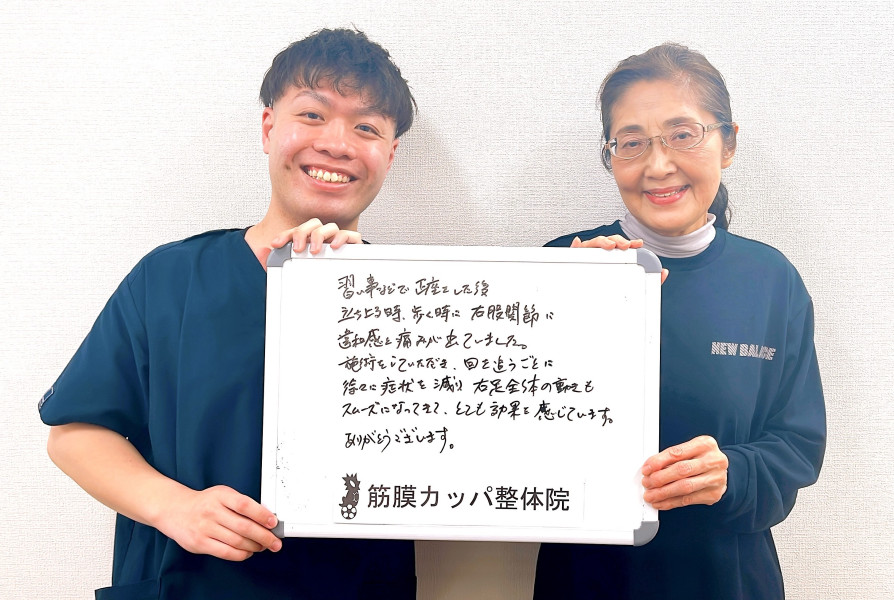 習い事などで正座をした後
立ち上る時、歩く時に右股関節に
違和感と痛みが出ていました。
施術をしていただき、回を追うごとに
徐々に症状も減り右足全体の動きも
スムーズになってきて、とても効果を感じています。
ありがとうございます。
筋膜カッパ整体院
NEW BALANCE